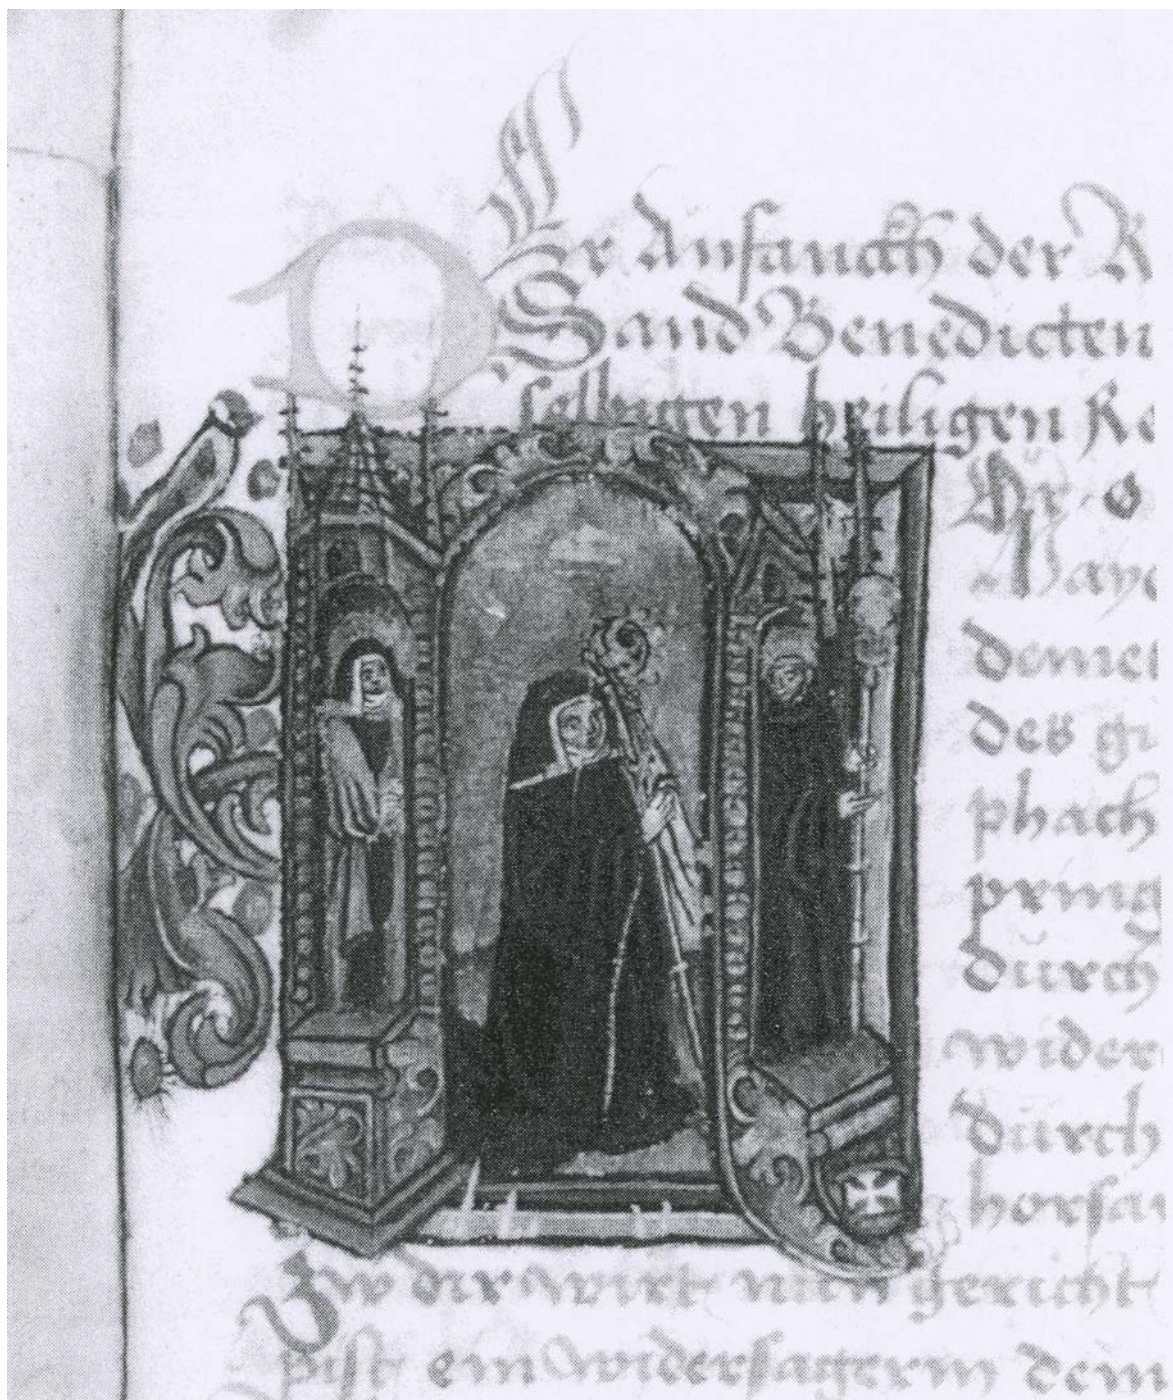 Der Anfanckh der R
Sand Benedicten
selbigen heiligen Re
demet
des
phach
durch
wider
durch
horsa
Zw dir wirt nun gericht
pist ein widersagerin dem